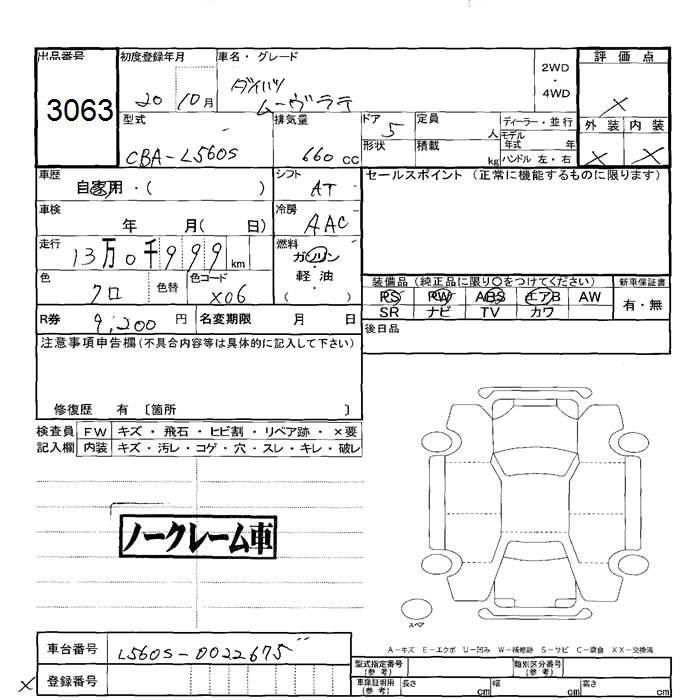 出品番号 初度登録年月 車名・グレード 評価点
3063
20 10月 ダイハツ ムーヴラテ 2WD・4WD ×
型式 排気量 ドア 定員 ディーラー・並行 外装 内装
CBA-L560S 660cc 5 人 モデル年式 年
形状 積載 kg ハンドル 左・右 × ×
車歴 シフト セールスポイント (正常に機能するものに限ります)
自家用・( ) AT
車検 冷房
年 月( 日) AAC
走行 燃料
13万0千999km ガソリン・軽油
色 色替 色コード ( )
クロ X06
装備品 (純正品に限り〇をつけてください) 新車保証書
PS PW ABS エアB AW 有・無
SR ナビ TV カワ
R券 9,200円 名変期限 月 日
後日品
注意事項申告欄(不具合内容等は具体的に記入して下さい)
修復歴 有 〔箇所 〕
検査員 FW キズ・飛石・ヒビ割・リペア跡・×要
記入欄 内装 キズ・汚レ・コゲ・穴・スレ・キレ・破レ
ノークレーム車
スペア
A-キズ E-エクボ U-凹み W-補修跡 S-サビ C-腐食 XX-交換済
車台番号 L560S-0022675
× 登録番号
型式指定番号(参考) 類別区分番号(参考)
車庫証明用(参考) 長さ cm 幅 cm 高さ cm